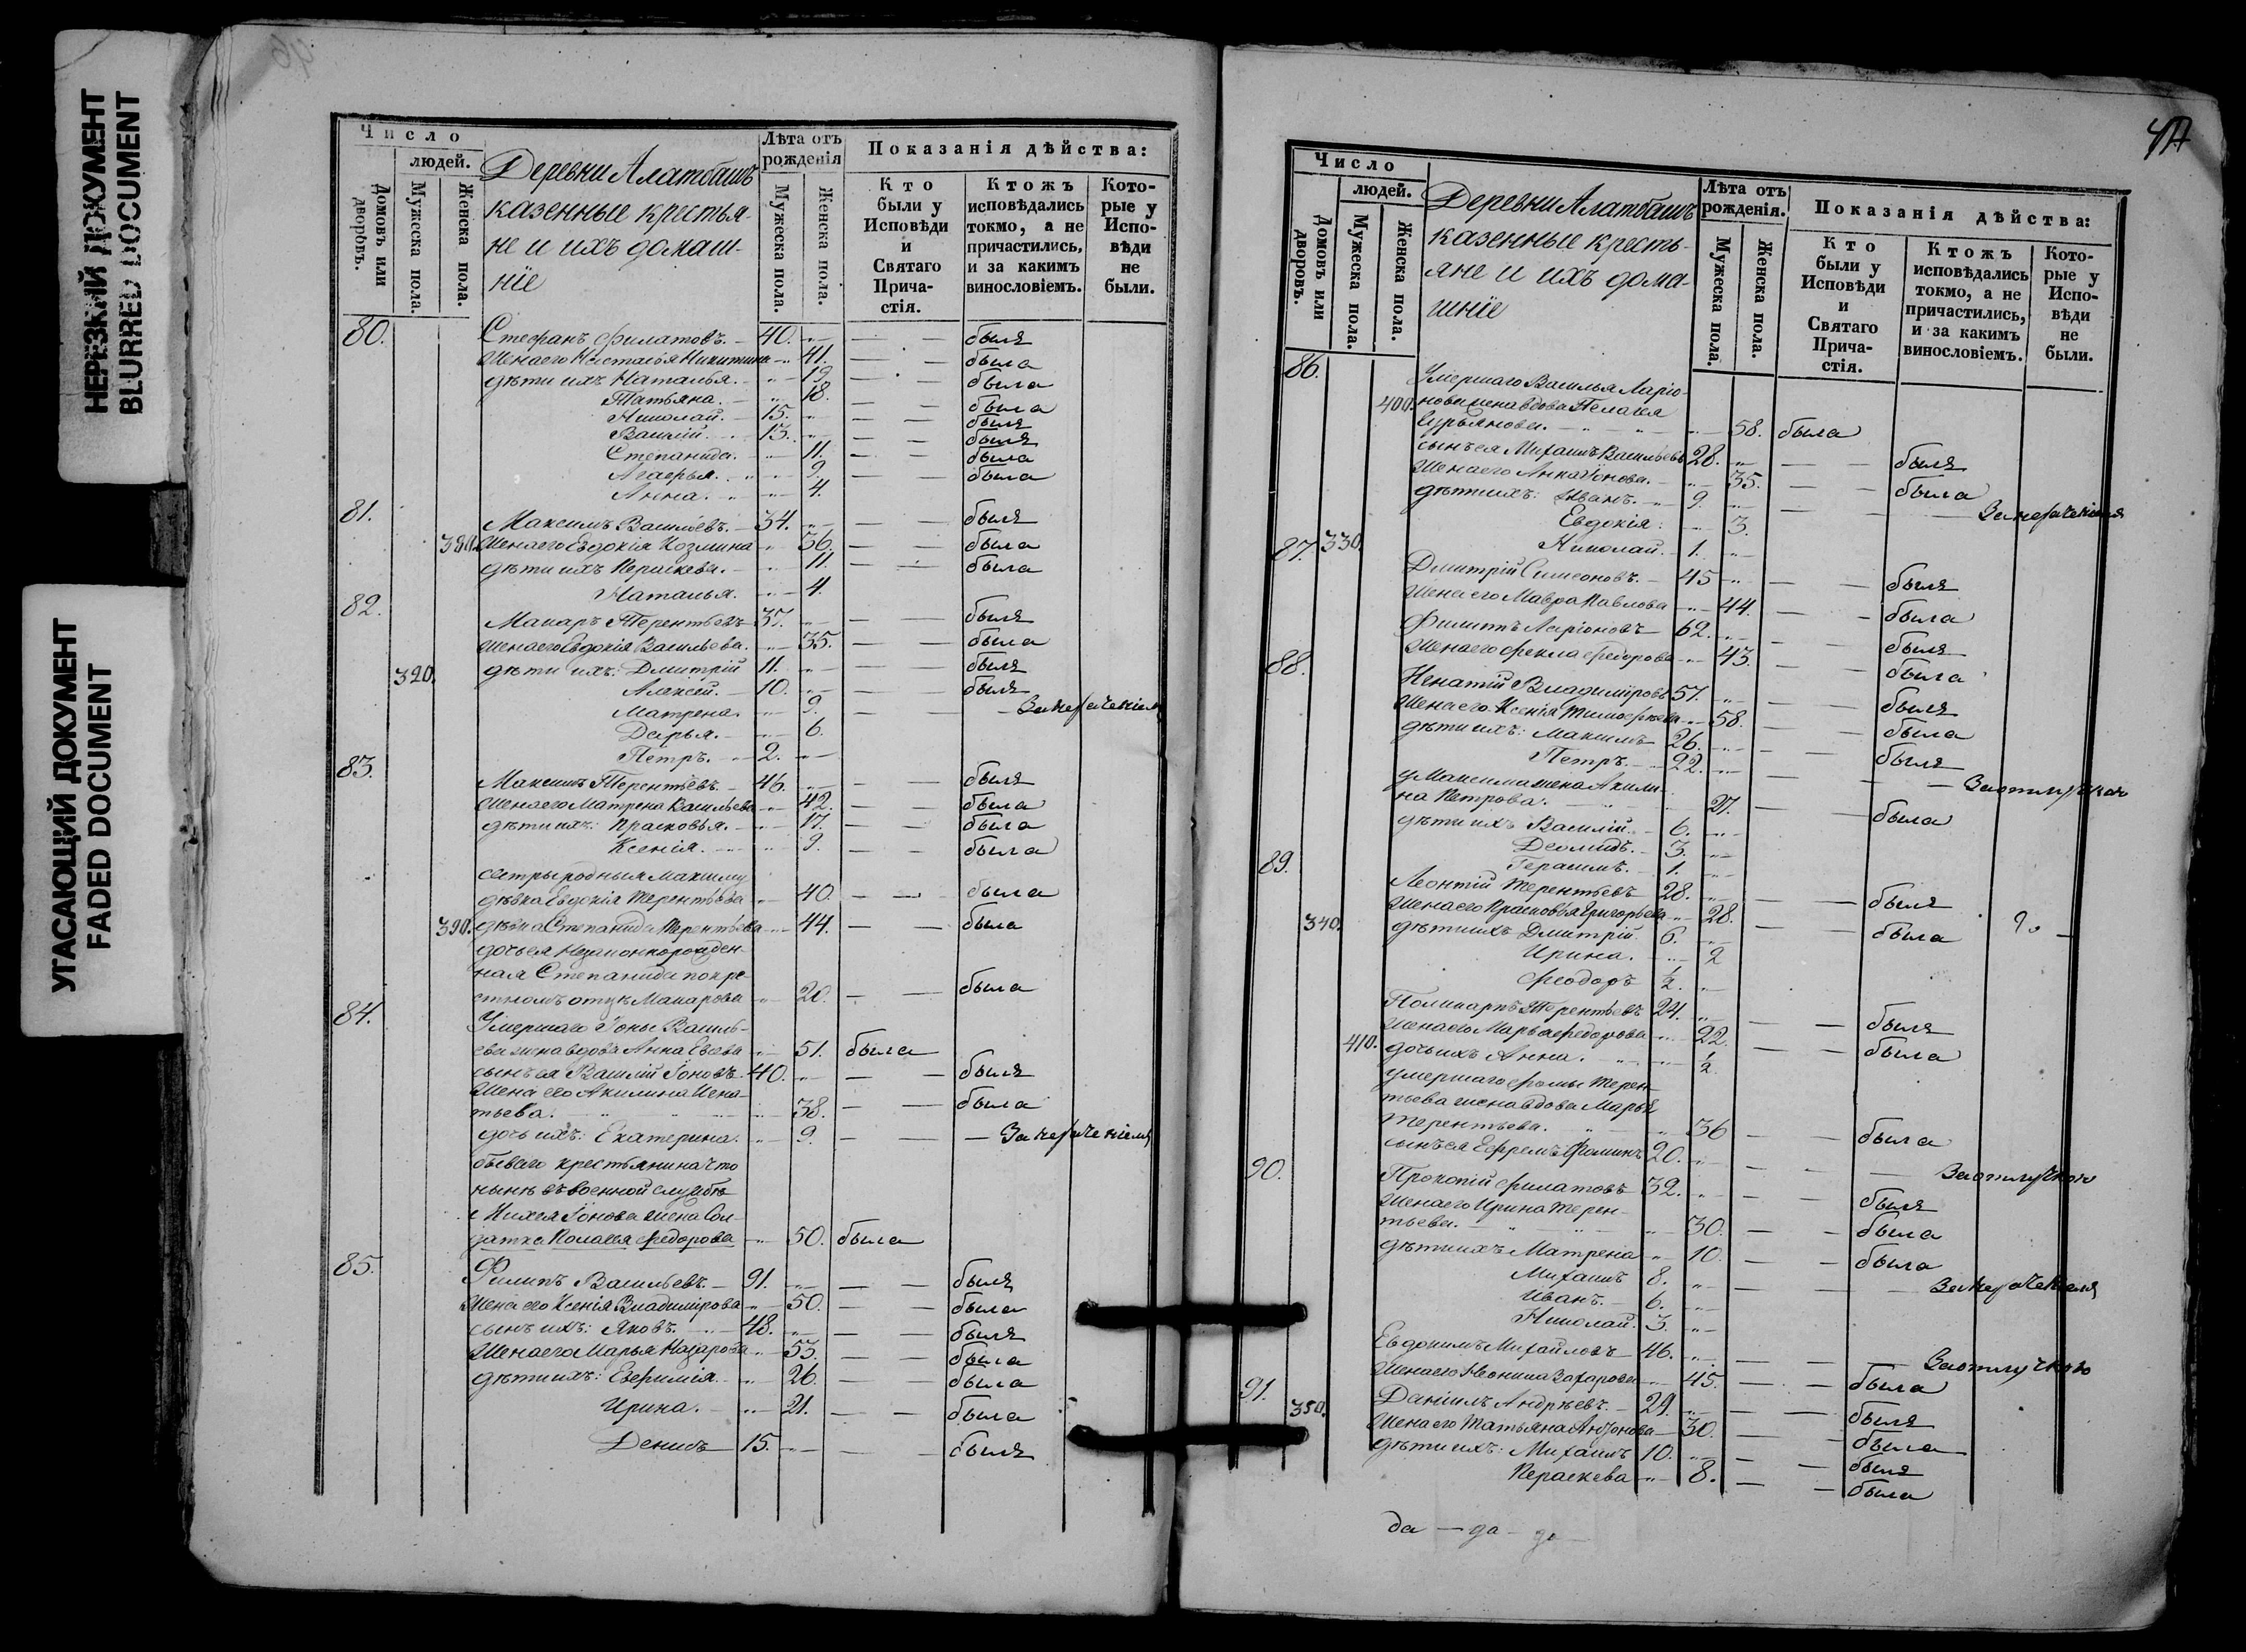 НЕРЕЗКИЙ ДОКУМЕНТ
BLURRED DOCUMENT
УГАСАЮЩИЙ ДОКУМЕНТ
FADED DOCUMENT
Число
людей.
Домовъ или дворовъ.
Мужеска пола.
Женска пола.
Деревни Алатбашъ
казенные крестья-
не и ихъ домаш-
нiе
Лѣта отъ рожденiя
Мужеска пола.
Женска пола.
Показанiя дѣйства:
Кто были у Исповѣди и Святаго Прича-стiя.
Ктожъ исповѣдались токмо, а не причастились, и за какимъ винословiемъ.
Кото-рые у Испо-вѣди не были.
80. Стефанъ Филатовъ. 40. былъ
Жена его Наталья Никитина 41. была
дѣти ихъ Наталья. 19. была
Татьяна. 18. была
Николай. 15. былъ
Василiй. 13. былъ
Степанида. 11. была
Агафья. 9. была
Анна. 4.
81. Максимъ Васильевъ. 34. былъ
380. Жена его Евдокiя Козмина 36. была
дѣти ихъ Параскева. 11. была
Наталья. 4.
82. Макаръ Терентьевъ 37. былъ
Жена его Евдокiя Васильева. 35. была
320. дѣти ихъ: Дмитрiй 11. былъ
Алексѣй. 10. былъ
Матрена. 9. За нерачениемъ
Дарья. 6.
Петръ. 2.
83. Максимъ Терентьевъ. 46. былъ
Жена его Матрена Васильева 42. была
дѣти ихъ: Прасковья. 17. была
Ксенiя. 9. была
сестры родныя Максиму
дѣвка Евдокiя Терентьева 40. была
390. дѣвка Степанида Терентьева 44. была
дочь ея незаконнорожден-
ная Степанида по кре-
стномъ отцѣ Макарова 20. была
84. Умершаго Iоны Василь-
ева жена вдова Анна Евсева 51. была
сынъ ея Василiй Iоновъ 40. былъ
Жена его Акилина Игна-
тьева. 38. была
дочь ихъ: Екатерина. 9. За нерачениемъ
бывшаго крестьянина что
нынѣ въ военной службѣ
Iонова жена Сол-
датка Пелагея Федорова 50. была
85. Филипъ Васильевъ. 91. былъ
Жена его Ксенiя Владимiрова 50. была
сынъ ихъ: Яковъ. 48. былъ
Жена его Марья Назарова 53. была
дѣти ихъ: Евфимiя. 26. была
Ирина. 21. была
Денисъ 15. былъ
47
Число
людей.
Домовъ или дворовъ.
Мужеска пола.
Женска пола.
Деревни Алатбашъ
казенные кресть-
яне и ихъ дома-
шнiе
Лѣта отъ рожденiя.
Мужеска пола.
Женска пола.
Показанiя дѣйства:
Кто были у Исповѣди и Святаго Прича-стiя.
Ктожъ исповѣдались токмо, а не причастились, и за какимъ винословiемъ.
Кото-рые у Испо-вѣди не были.
86. Умершаго Василья Ларiо-
400. нова жена вдова Пелагея
Гурьянова. 58. была
сынъ ея Михаилъ Васильевъ 28. былъ
Жена его Анна Iонова. 35. была
дѣти ихъ: Иванъ. 9. За нерачениемъ
Евдокiя: 3.
330. Николай. 1.
87. Дмитрiй Симеоновъ. 45 былъ
Жена его Мавра Павлова 44. была
Филипъ Ларiоновъ 62. былъ
Жена его Фекла Федорова 43. была
88. Игнатiй Владимiровъ 57. былъ
Жена его Ксенiя Тимофѣева 58. была
дѣти ихъ: Максимъ 26. былъ
Петръ. 22. За отлучкою
у Максима жена Акили-
на Петрова. 27. была
дѣти ихъ Василiй. 6.
Деомидъ. 3.
Герасимъ. 1.
89. Леонтiй Терентьевъ 28. былъ
Жена его Прасковья Григорьева 28. была
340. дѣти ихъ Дмитрiй 6.
Ирина. 2
Феодоръ ½.
Поликарпъ Терентьевъ 24. былъ
Жена его Марья Федорова 22. была
410. дочь ихъ Анна. ½
умершаго Фомы Терен-
тьева жена вдова Марья
Терентьева. 36 была
сынъ ея Ефремъ Фоминъ 20. За отлучкою
90. Прокопiй Филатовъ 32. былъ
Жена его Ирина Терен-
тьева. 30. была
дѣти ихъ Матрена 10. была
Михаилъ 8. За нерачениемъ
Иванъ. 6.
Николай. 3.
Евдокимъ Михайловъ 46. За отлучкою
Жена его Захарова 45. была
91. 350. Данiилъ Андреевъ. 29. былъ
Жена его Татьяна Антонова 30. была
дѣти ихъ: Михаилъ 10. былъ
Параскева 8. была
да — да — да